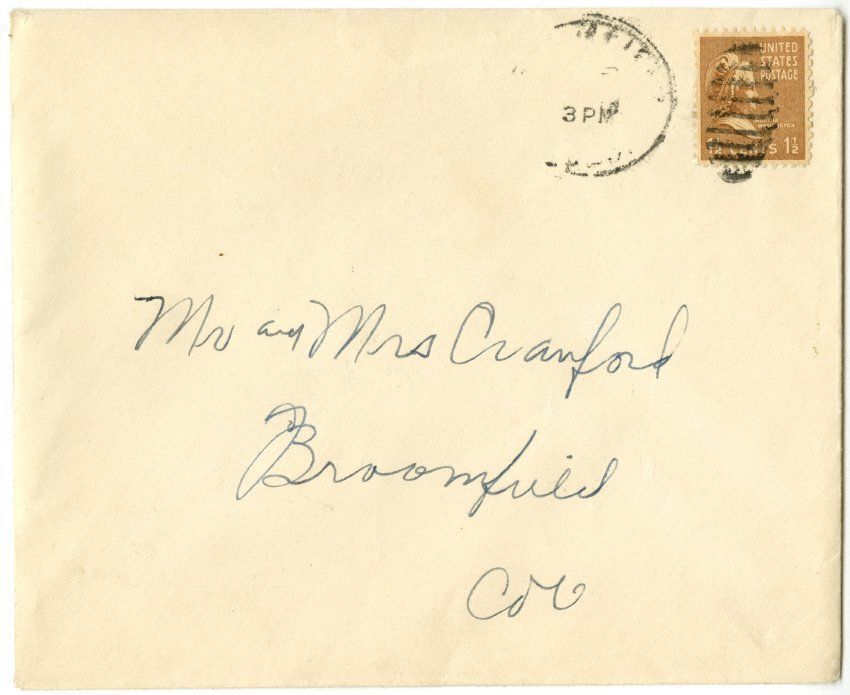 3 PM
UNITED
STATES
POSTAGE
WASHINGTON
1½ CENTS 1½
Mr and Mrs Cranford
Broomfield
Col